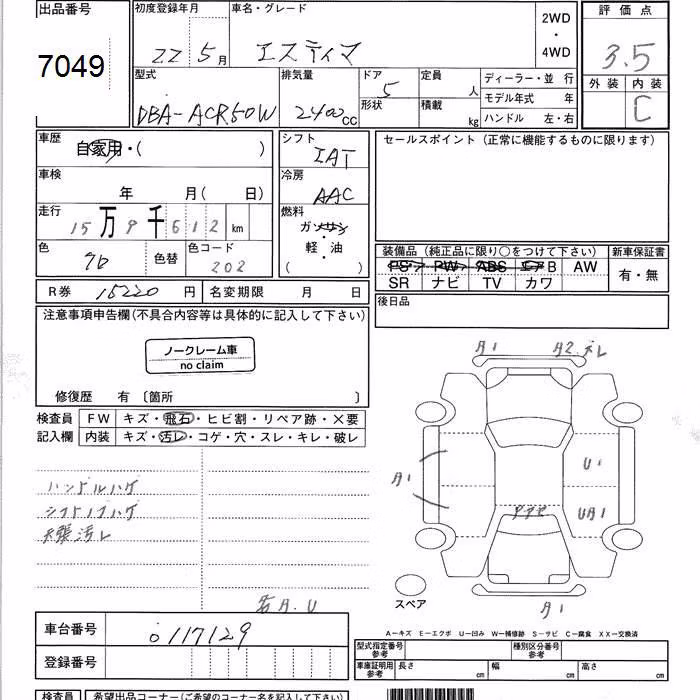 出品番号
7049
初度登録年月
22 5月
車名・グレード
エスティマ
2WD
・
4WD
評価点
3.5
外装 内装
C
型式
DBA-ACR50W
排気量
2400cc
ドア
5
形状
定員
人
積載
kg
ディーラー・並行
モデル年式 年
ハンドル 左・右
車歴
自家用・( )
シフト
IAT
セールスポイント(正常に機能するものに限ります)
車検
年 月( 日)
冷房
AAC
走行
15万9千612km
燃料
ガソリン
軽・油
( )
色
色替
色コード
202
装備品(純正品に限り○をつけて下さい)
新車保証書
PS PW ABS エアB AW
SR ナビ TV カワ
有・無
R券 15220円
名変期限 月 日
後日品
注意事項申告欄(不具合内容等は具体的に記入して下さい)
ノークレーム車
no claim
修復歴 有〔箇所 〕
検査員
記入欄
FW キズ・飛石・ヒビ割・リペア跡・X要
内装 キズ・汚レ・コゲ・穴・スレ・キレ・破レ
ハンドルハゲ
シフトノブハゲ
天張汚レ
右A.U
A1
A2.ズレ
A1
U1
UA1
A1
スペア
A-キズ E-エクボ U-凹み W-補修跡 S-サビ C-腐食 XX-交換済
車台番号
0117129
登録番号
型式指定番号
参考
種別区分番号
参考
車庫証明用
参考
長さ cm
幅 cm
高さ cm
検査員
希望出品コーナー(ご希望のコーナー名を記入下さい)